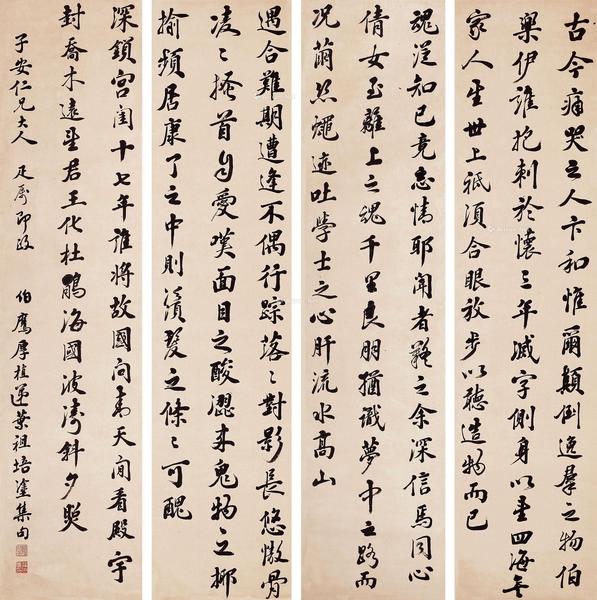 古今痛哭之人卞和惟爾顛倒逸群之物伯
樂伊誰抱刺於懷三年滅字側身以望四海無
家人生世上祇須合眼放步以聽造物而已
魂從知已竟忘情耶聞者疑之余深信焉同心
倩女至離上之魂千里良朋猶識夢中之路而
況繭絲蠅迹吐學士之心肝流水高山
遇合難期遭逢不偶行踪落落對影長愁傲骨
凌凌搔首自愛嘆面目之酸澀來鬼物之揶
揄頻居康了之中則鬚髮之條條可醜
深鎖宮闈十七年誰將故國問青天閒看殿宇
封喬木遠望君王化杜鵑海國波濤斜夕照
子安仁兄大人 疋屬即政 伯鷹厚植 葉祖培 集句